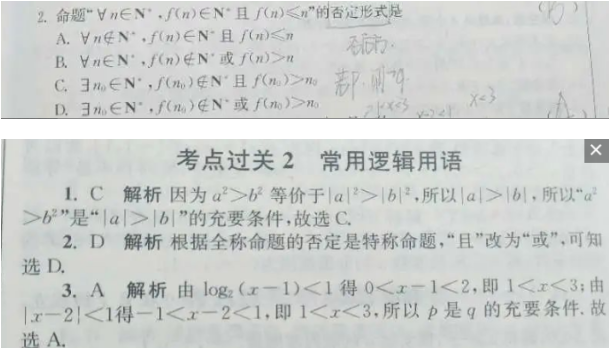 2. 命题“∀n∈N*,f(n)∈N*且f(n)≤n”的否定形式是
A. ∀n∉N*,f(n)∈N*且f(n)≤n
B. ∀n∈N*,f(n)∉N*或f(n)>n
C. ∃n₀∈N*,f(n₀)∉N*且f(n₀)>n₀
D. ∃n₀∈N*,f(n₀)∉N*或f(n₀)>n₀
x<3
考点过关2 常用逻辑用语
1. C 解析 因为a²>b²等价于|a|²>|b|²,所以|a|>|b|,所以“a²
>b²”是“|a|>|b|”的充要条件,故选C.
2. D 解析 根据全称命题的否定是特称命题,“且”改为“或”,可知
选D.
3. A 解析 由log₂(x-1)<1得0<x-1<2,即1<x<3;由
|x-2|<1得-1<x-2<1,即1<x<3,所以p是q的充要条件.故
选A.